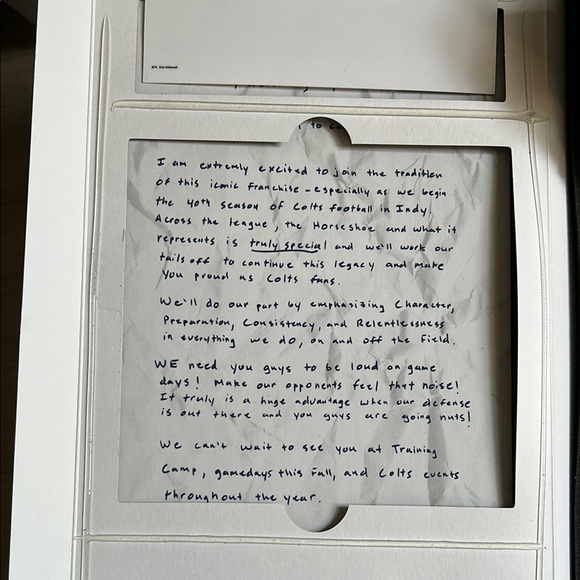 to
I am extremly excited to join the tradition
of this iconic franchise - especially as we begin
the 40th season of Colts football in Indy.
Across the league, the Horseshoe and what it
represents is truly special and we'll work our
tails off to continue this legacy and make
you proud as Colts fans.
We'll do our part by emphasizing Character,
Preparation, Consistency, and Relentlessness
in everything we do, on and off the field.
WE need you guys to be loud on game
days! Make our opponents feel that noise!
It truly is a huge advantage when our defense
is out there and you guys are going nuts!
We can't wait to see you at Training
Camp, gamedays this Fall, and Colts events
throughout the year.